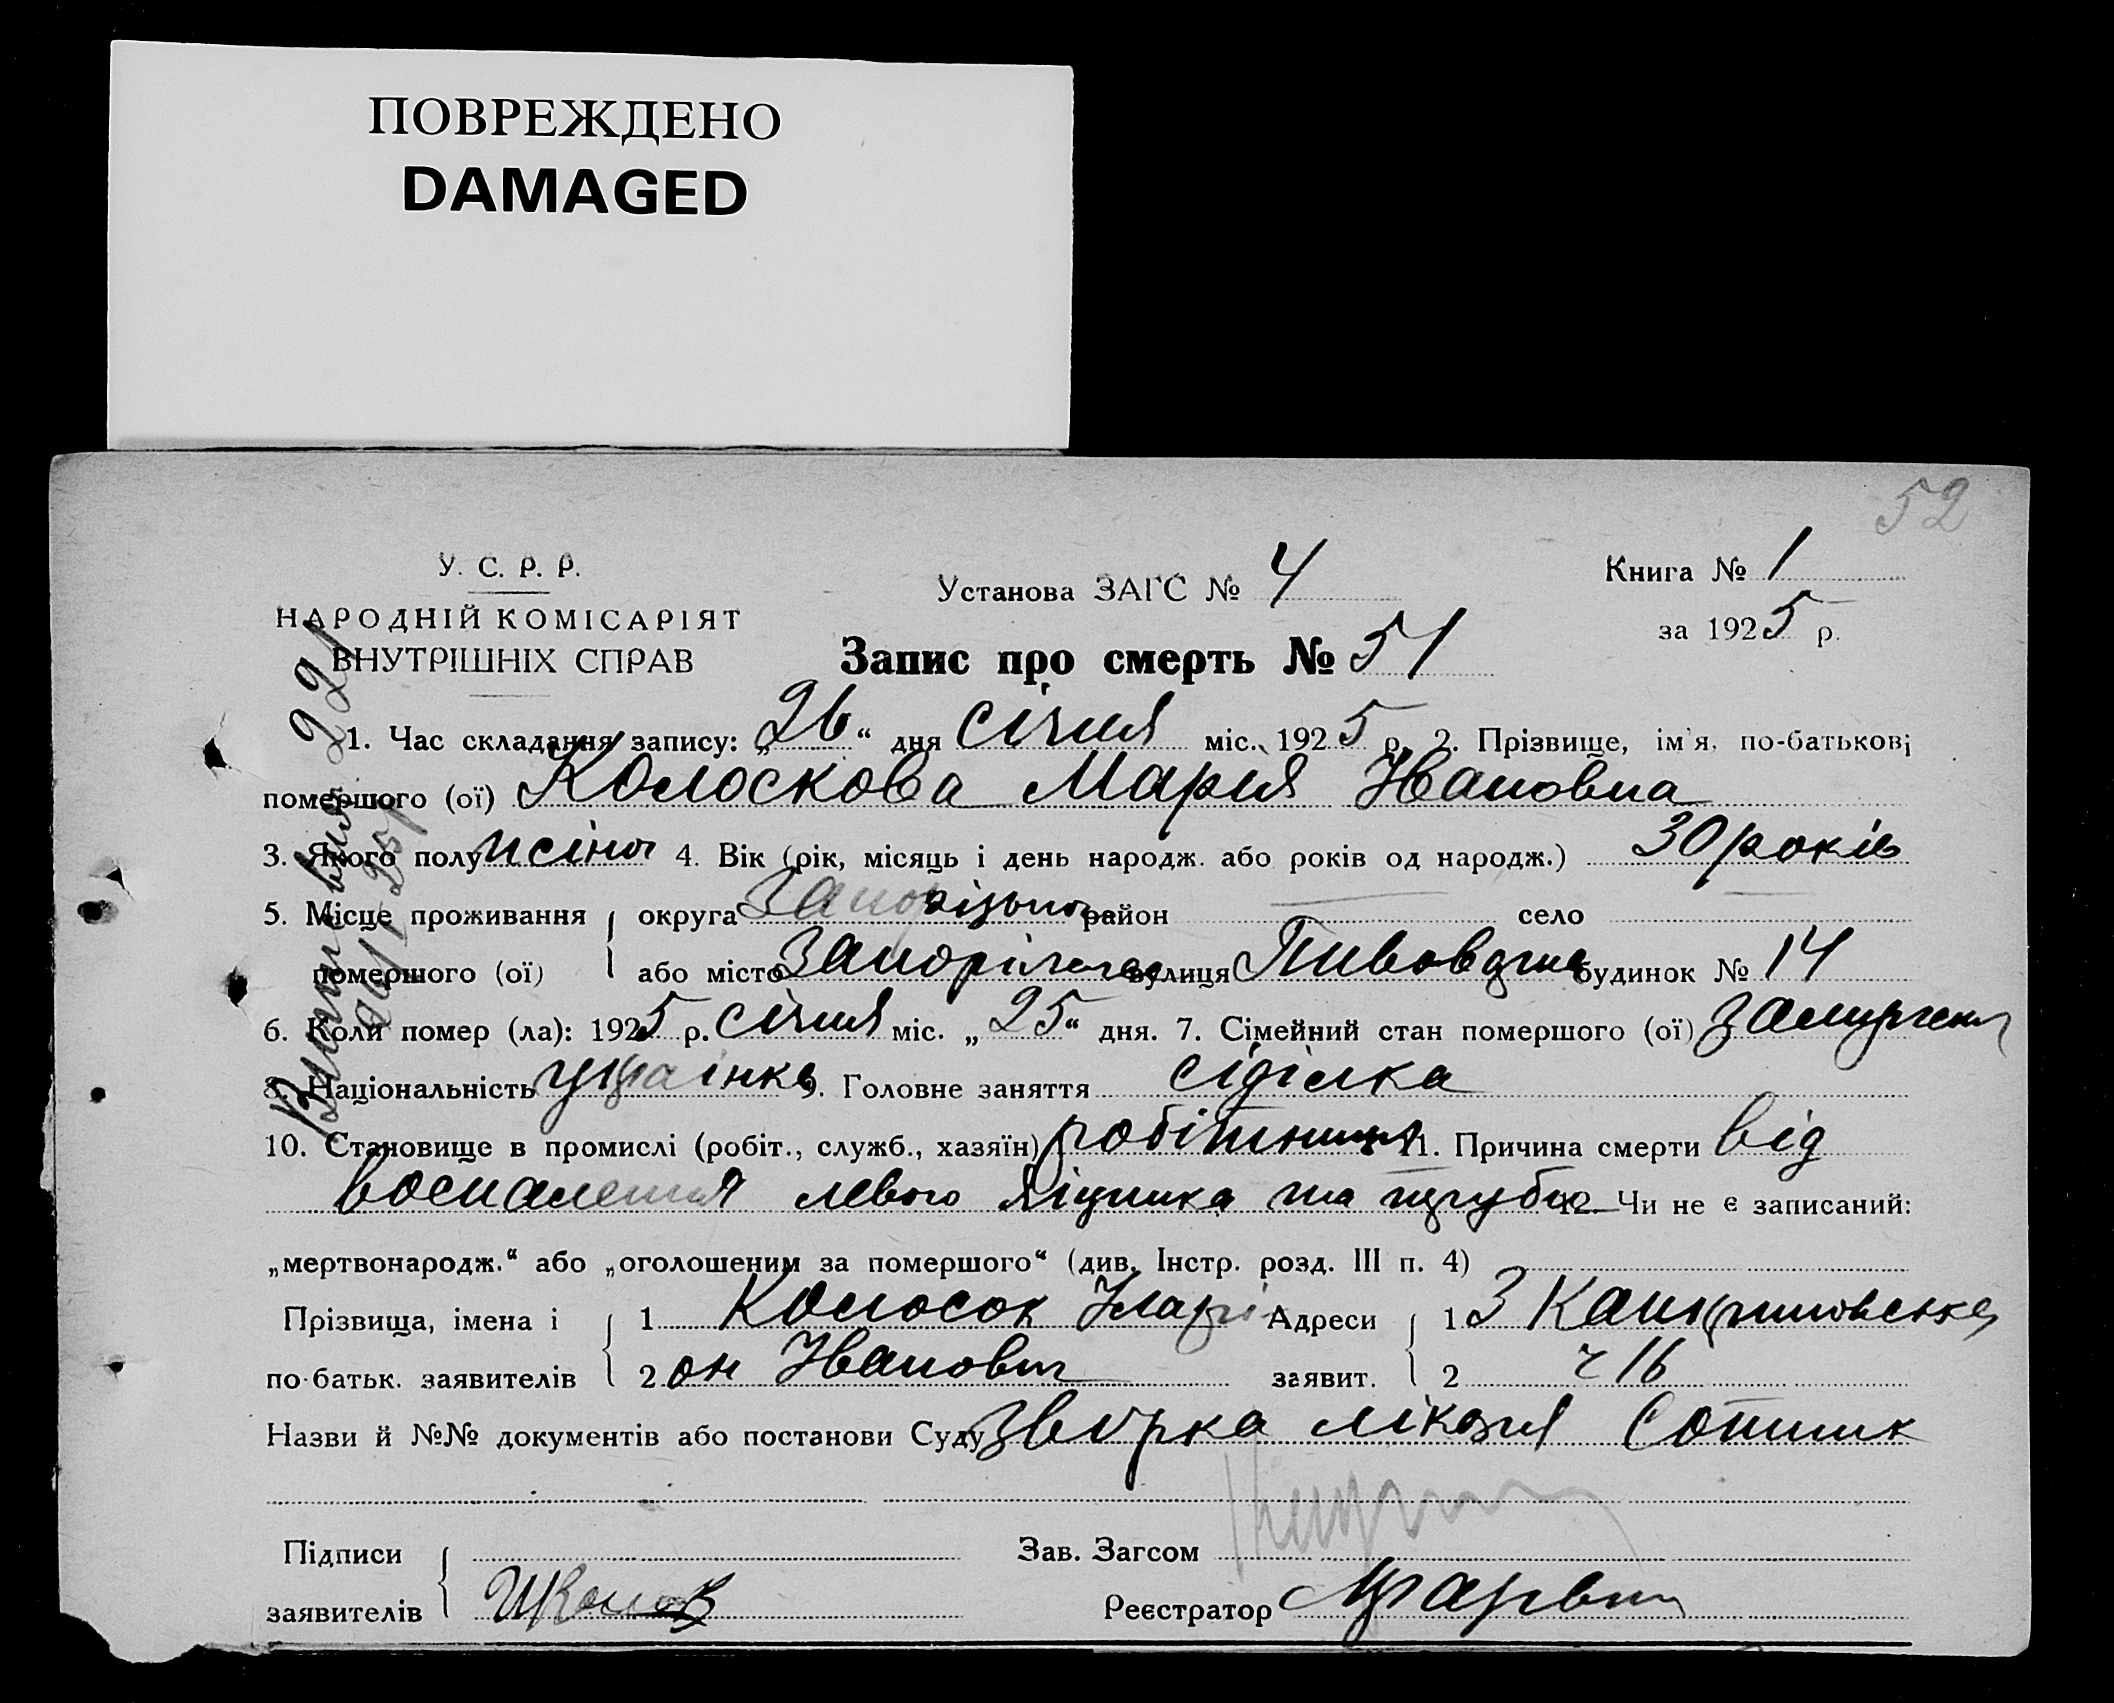 ПОВРЕЖДЕНО
DAMAGED
52
У. С. Р. Р.
НАРОДНІЙ КОМІСАРІЯТ
ВНУТРІШНІХ СПРАВ
Установа ЗАГС № 4
Книга № 1
за 1925 р.
Запис про смерть № 51
1. Час складання запису: „26“ дня січня міс. 1925 р. 2. Прізвище, ім'я, по-батькові
помершого (ої) Колоскова Мария Ивановна
3. Якого полу жіноч 4. Вік (рік, місяць і день народж. або років од народж.) 30 років
5. Місце проживання округа Запорізька район — село —
помершого (ої) або місто Запоріжжя вулиця будинок № 14
6. Коли помер (ла): 1925 р. січня міс. „25“ дня. 7. Сімейний стан помершого (ої) замужем
8. Національність українка 9. Головне заняття сіділка
10. Становище в промислі (робіт., служб., хазяїн) робітниця 11. Причина смерти від
воспалення левого яішника та трубы 12. Чи не є записаний:
„мертвонародж.“ або „оголошеним за помершого“ (див. Інстр. розд. III п. 4)
Прізвища, імена і 1 Колосок Иларі Адреси 1
по-батьк. заявителів 2 он Иванович заявит. 2 ч 16
Назви й №№ документів або постанови Суду лікаря Сотник
Підписи Зав. Загсом
заявителів Реєстратор